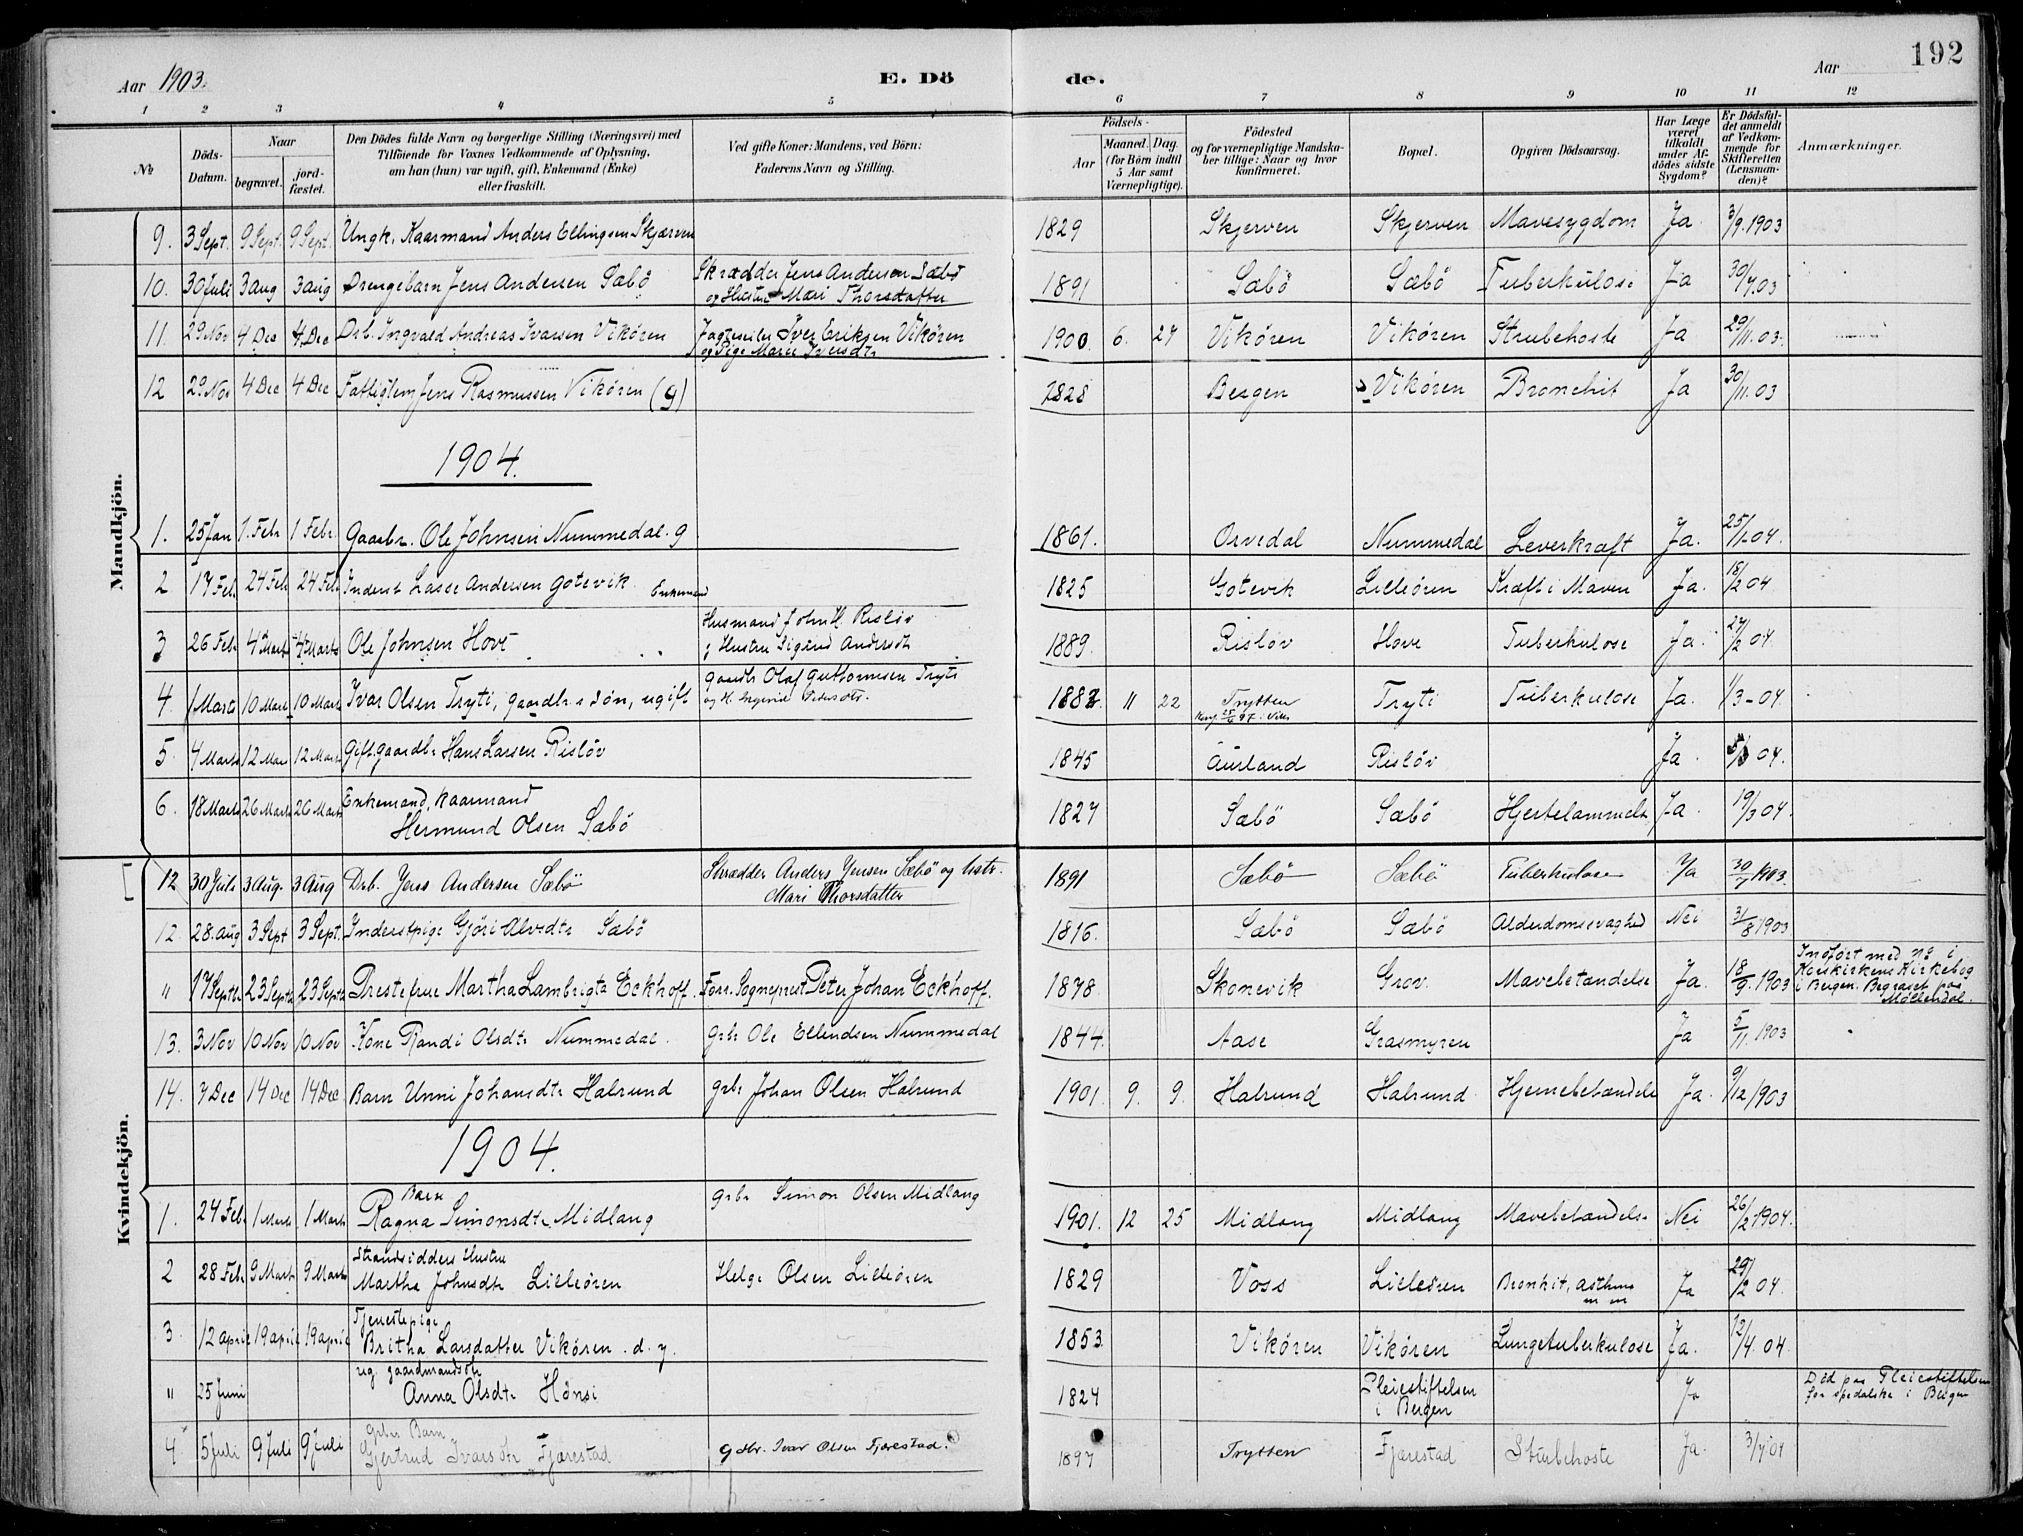 192
Aar 1903. E. Dö de. Aar
1 2 3 4 5 6 7 8 9 10 11 12
No Döds-Datum. Naar begravet. jordfæstet. Den Dödes fulde Navn og borgerlige Stilling (Næringsvei) med Tilföiende for Voxnes Vedkommende af Oplysning, om han (hun) var ugift, gift, Enkemand (Enke) eller fraskilt. Ved gifte Koner: Mandens, ved Börn: Faderens Navn og Stilling. Födsels- Aar Maaned. Dag. (for Börn indtil 5 Aar samt Værnepligtige). Födested og for værnepligtige Mandskaber tillige: Naar og hvor konfirmeret. Bopæl. Opgiven Dödsaarsag. Har Læge været tilkaldt under Afdödes sidste Sygdom? Er Dödsfaldet anmeldt af Vedkommende for Skifteretten (Lensmanden)? Anmærkninger.
Mandkjön.
9. 3 Sept. 9 Sept. 9 Sept. Ungk. Kaarmand Anders Ellingsen Skjærven 1829 Skjerven Skjerven Mavesygdom Ja 3/9.1903
10. 30 Juli 3 aug 3 aug Drengebarn Jens Andersen Sæbö Skrædder Jens Andersen Sæbö og Hustru Mari Thorsdatter 1891 Sæbö Sæbö Tuberkulose Ja 30/7.03
11. 29 Nov 4 Dec 4 Dec Drb. Ingvald Andreas Ivarsen Vikören Iver Eriksen Vikören og Pige Marie Iversdtr 1900 6. 27 Vikören Vikören Strubehoste Ja 29/11.03.
12 29 Nov 4 Dec 4 Dec Fattiglem Jens Rasmussen Vikören (g) 1828 Bergen Vikören Bronchit Ja 30/11.03
1904.
1. 25 Jan 1. Febr 1 Febr. Gaarbr. Ole Johnsen Nummedal. g 1861. Orvedal Nummedal Leverkræft Ja. 25/1.04.
2 17 Feb. 24 Feb 24 Feb Inderst Lasse Andersen Gotevik. Enkemand 1825 Gotevik Lilleören Kræft i Maven Ja. 18/2 04
3 26 Feb. 4 Marts 4 Marts Ole Johnsen Hove Husmand John H. Rislöv og Hustru Sigrid Andersdt 1889. Rislöv Hove Tuberkulose Ja. 27/2 04
4. 1 Marts 10 Mart 10 Mart Ivar Olsen Tryti, gaardbr.s sön, ugift Gaardbr Olaf Guttormsen Tryti 1882. 11 22 Trytten Tryti Tuberkulose Ja. 1/3-04.
5. 4 Marts 12 Mart 12 Mart Gift. gaardbr Hans Larsen Rislöv 1845 Aurland Rislöv Ja. 5/3 04.
6. 18 Marts 26 Marts 26 Marts Enkemand, kaarmand Hermund Olsen Sæbö 1827 Sæbö Sæbö Hjertelammelse Ja. 19/3 04.
Kvindekjön.
12 30 Juli 3 Aug. 3 Aug Drb. Jens Andersen Sæbö Skrædder Anders Jensen Sæbö og hstr. Mari Thorsdatter 1891 Sæbö Sæbö Tuberkulose Ja 30/7 1903.
12 28. aug 3 Sept 3 Sept. Inderstpige Gjöri Alvsdtr Sæbö 1816. Sæbö Sæbö Alderdomssvaghed Nei 31/8 1903
" 17 Septbr 23 Septb 23 Septb Prestefrue Martha Lambrigta Eckhoff. Forr. Sogneprest Peter Johan Eckhoff. 1878. Skonevik Grov. Mavebetændelse Ja. 18/9. 1903 Indfört med No i Korskirkens Kirkebog i Bergen. Begravet paa Möllendal.
13. 3 Nov 10 Nov 10 Nov Kone Randi Olsdtr Nummedal. Grbr Ole Ellendsen Nummedal 1844. Aase Grasmyren Ja 5/11. 1903
14. 7 Dec 14 Dec 14 Dec Barn Unni Johansdtr Halsund grbr Johan Olsen Halsund 1901. 9. 9. Halsund Halsund. Hjernebetændelse Ja. 9/12 1903
1904.
1. 24 Feb. 1 Marts 1 Marts Barn Ragna Simonsdtr Midlang grbr Simon Olsen Midlang 1901. 12 25 Midlang Midlang Mavebetændelse Nei 26/2 1904.
2 28 Febr 9 Marts 9 Marts Strandsidders Hustru Martha Johnsdtr Lilleören Helge Olsen Lilleören 1829 Voss Lilleören Bronkit, asthma m m Ja 29/2 04.
3 12 april 19 april 19 april Tjenestepige Britha Larsdatter Vikören. d. y. 1853. Vikören Vikören Lungetuberkulose Ja. 12/4. 04.
" 25 Juni ug. gaardmandsdtr Anna Olsdtr Hönsi 1824 Pleiestiftelsen i Bergen Ja Död paa Pleiestiftelsen for spedalske i Bergen
4 5 Juli 9 Juli 9 Juli grbr Barn Gjertrud Ivarsdtr Fjærestad gdbr. Ivar Olsen Fjærestad. 1897 Trytten Fjærestad Strubehoste Ja. 3/7 04